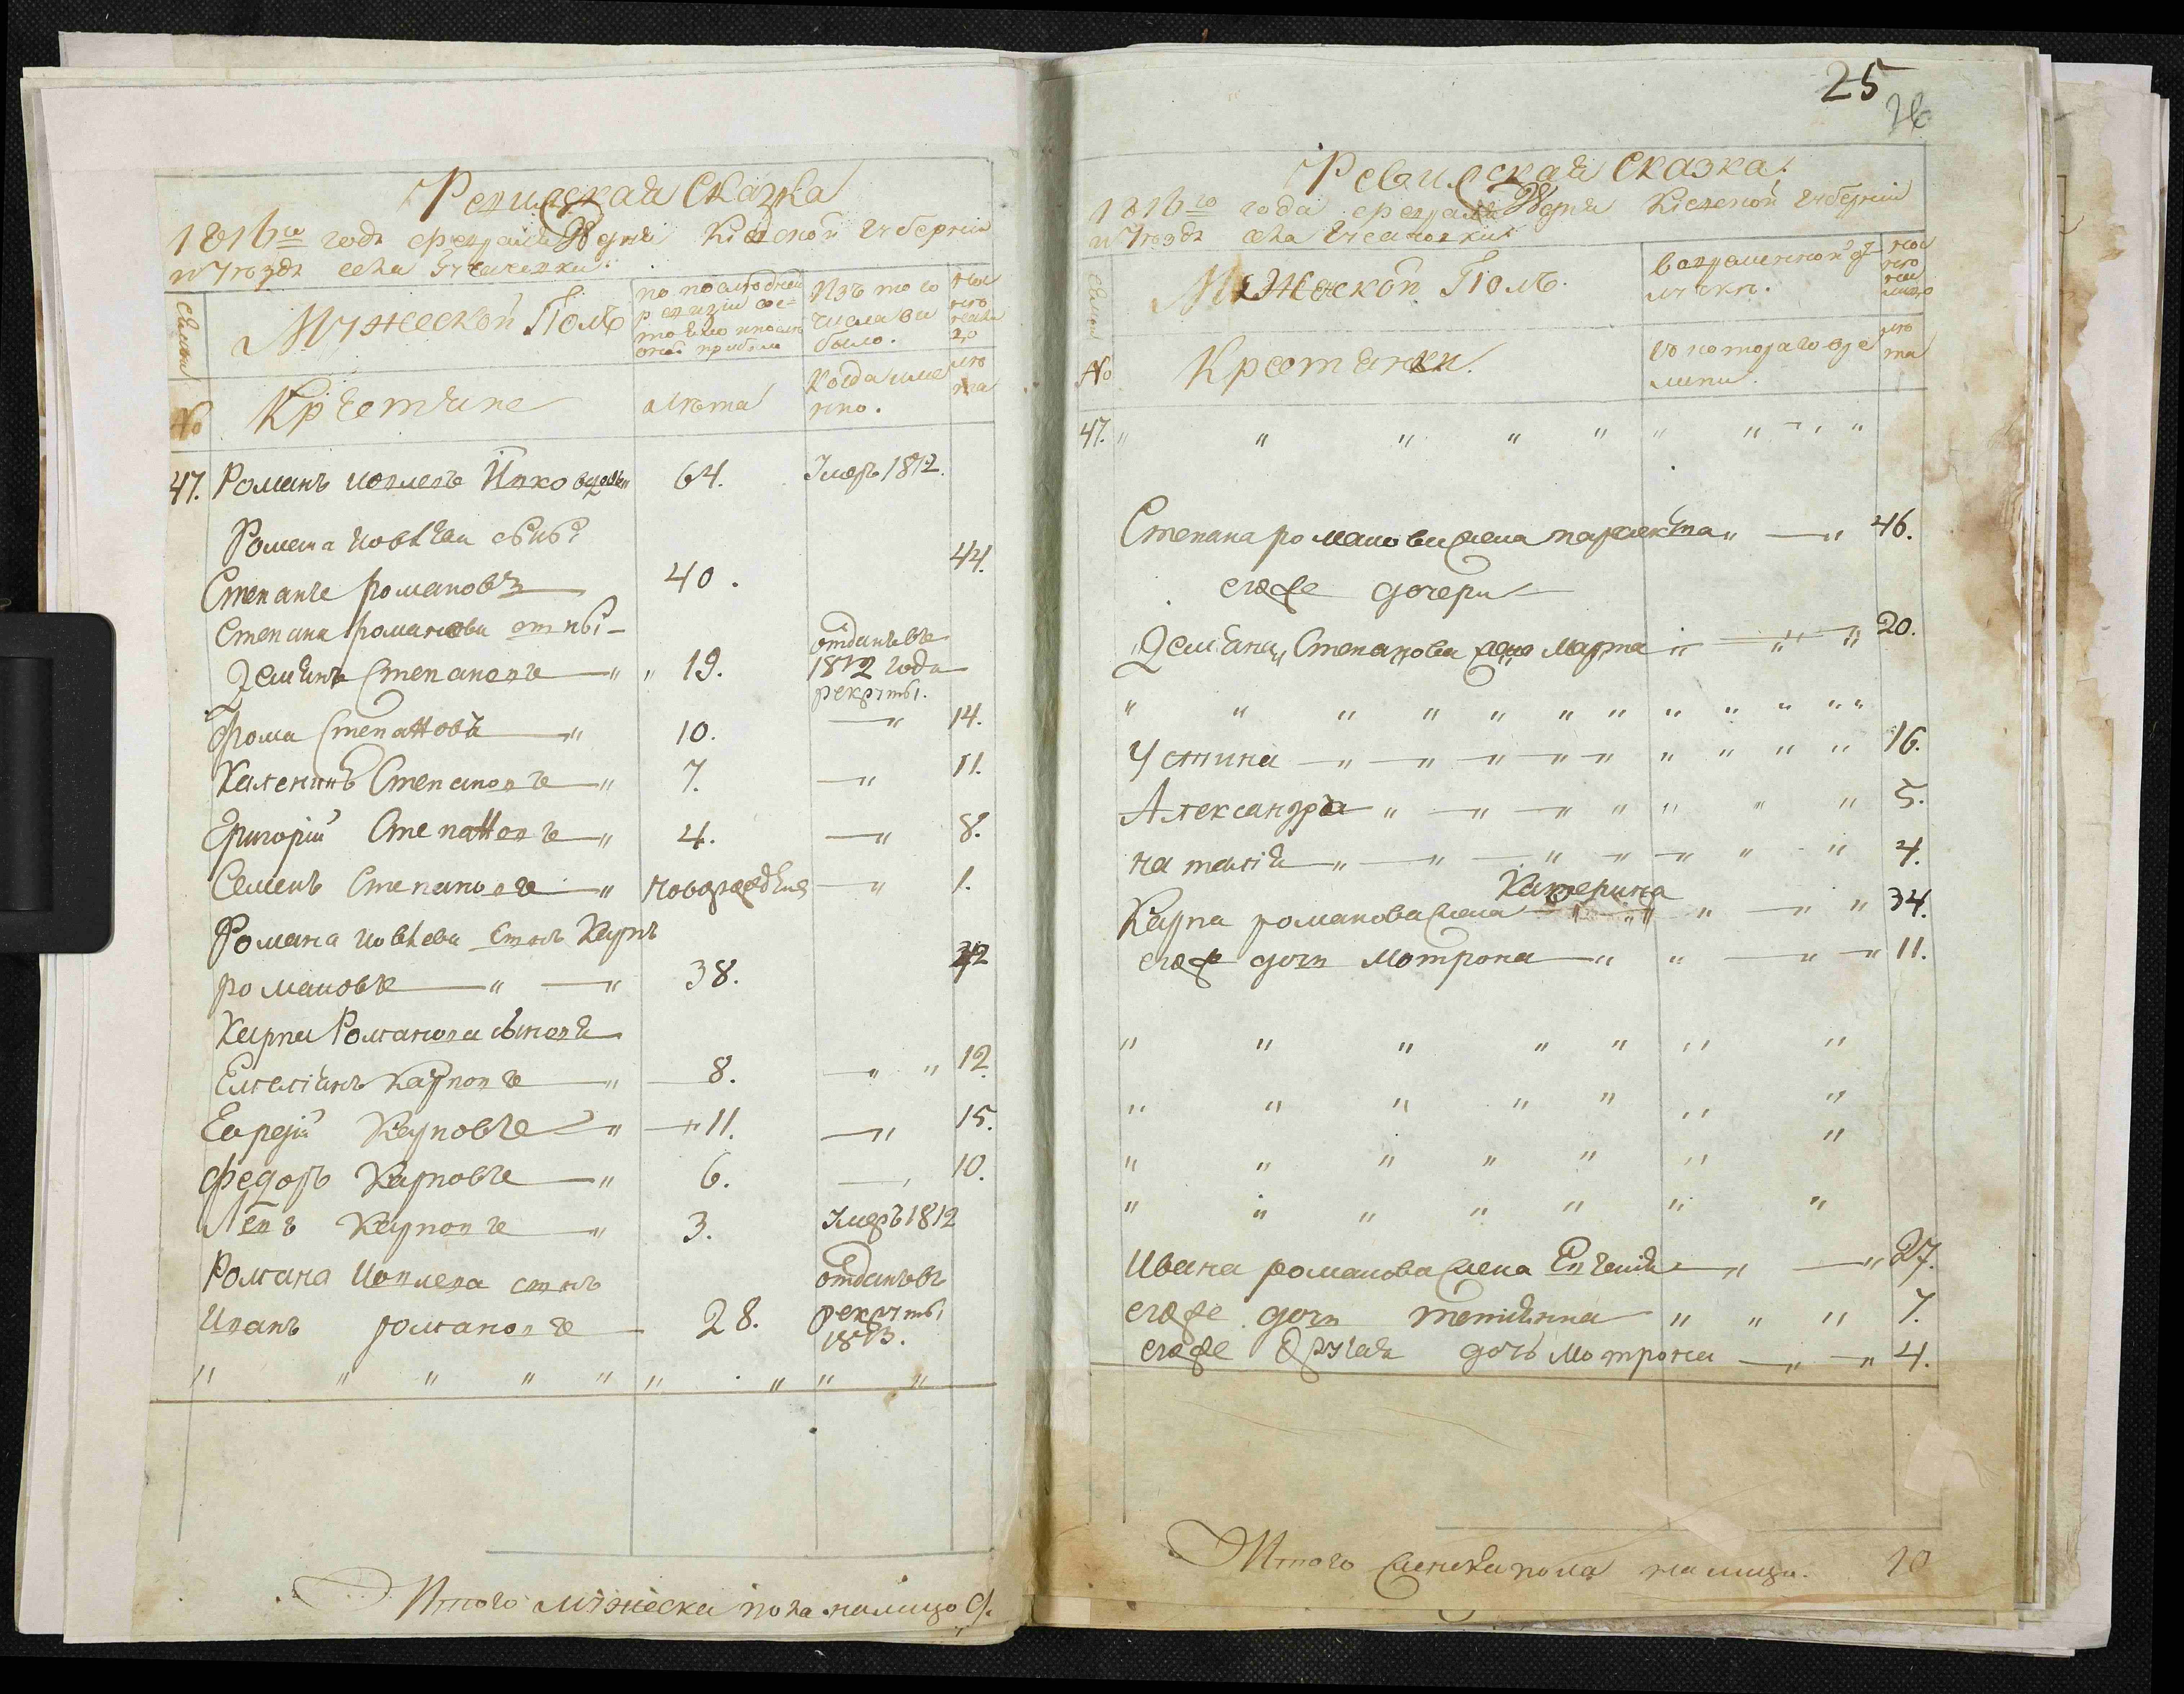 Ревизская Сказка
1816го года февраля 28 дня Кіевской губерніи
и уезда села
Семьи
Мужеской Полъ
по последней ревизіи состояло и после оной прибыло
Изъ того числа выбыло.
Ныне налицо
№
Крестьяне
лета
Когда именно.
лета
47. Романъ Иовлевъ 64. Умеръ 1812.
Романа Иовлева сынъ
Степанъ Романовъ 40. 44.
Степана Романова сыны
Демянъ Степановъ 19. отданъ въ 1812 года рекруты.
Фома Степановъ 10. — 14.
Каленикъ Степановъ 7. — 11.
Григорій Степановъ 4. — 8.
Семенъ Степановъ новорожденъ — 1.
Романа Иовлева сынъ Карпъ
Романовъ 38. 42
Карпа Романова сыновья
Емеліянъ Карповъ 8. 12.
Карповъ 11. 15.
Федоръ Карповъ 6. 10.
Левъ Карповъ 3. Умеръ 1812
Романа Иовлева сынъ отданъ въ
Иванъ Романовъ 28. рекруты 1813.
" " " " " " " " "
Итого мужеска пола налицо 9.
25
26
Ревизская Сказка.
1816го года февраля 28 дня Кіевской губерніи
и уезда села
Семьи
Женской Полъ.
во временной отлучке.
Ныне налицо
№
Крестьянки.
Съ котораго времени.
лета
47. " " " " " " " " "
Степана Романова жена 46.
егоже дочери
Демяна Степанова жена Марта 20.
" " " " " " " " " " " "
Устина 16.
Александра 5.
Наталія 4.
Катерина
Карпа Романова жена 34.
егож дочь Мотрона 11.
" " " " " " "
" " " " " " "
" " " " " " "
" " " " " " "
Ивана Романова жена 27.
егоже дочь Татіянна 7.
егоже другая дочь Мотрона 4.
Итого женска пола налицо. 10